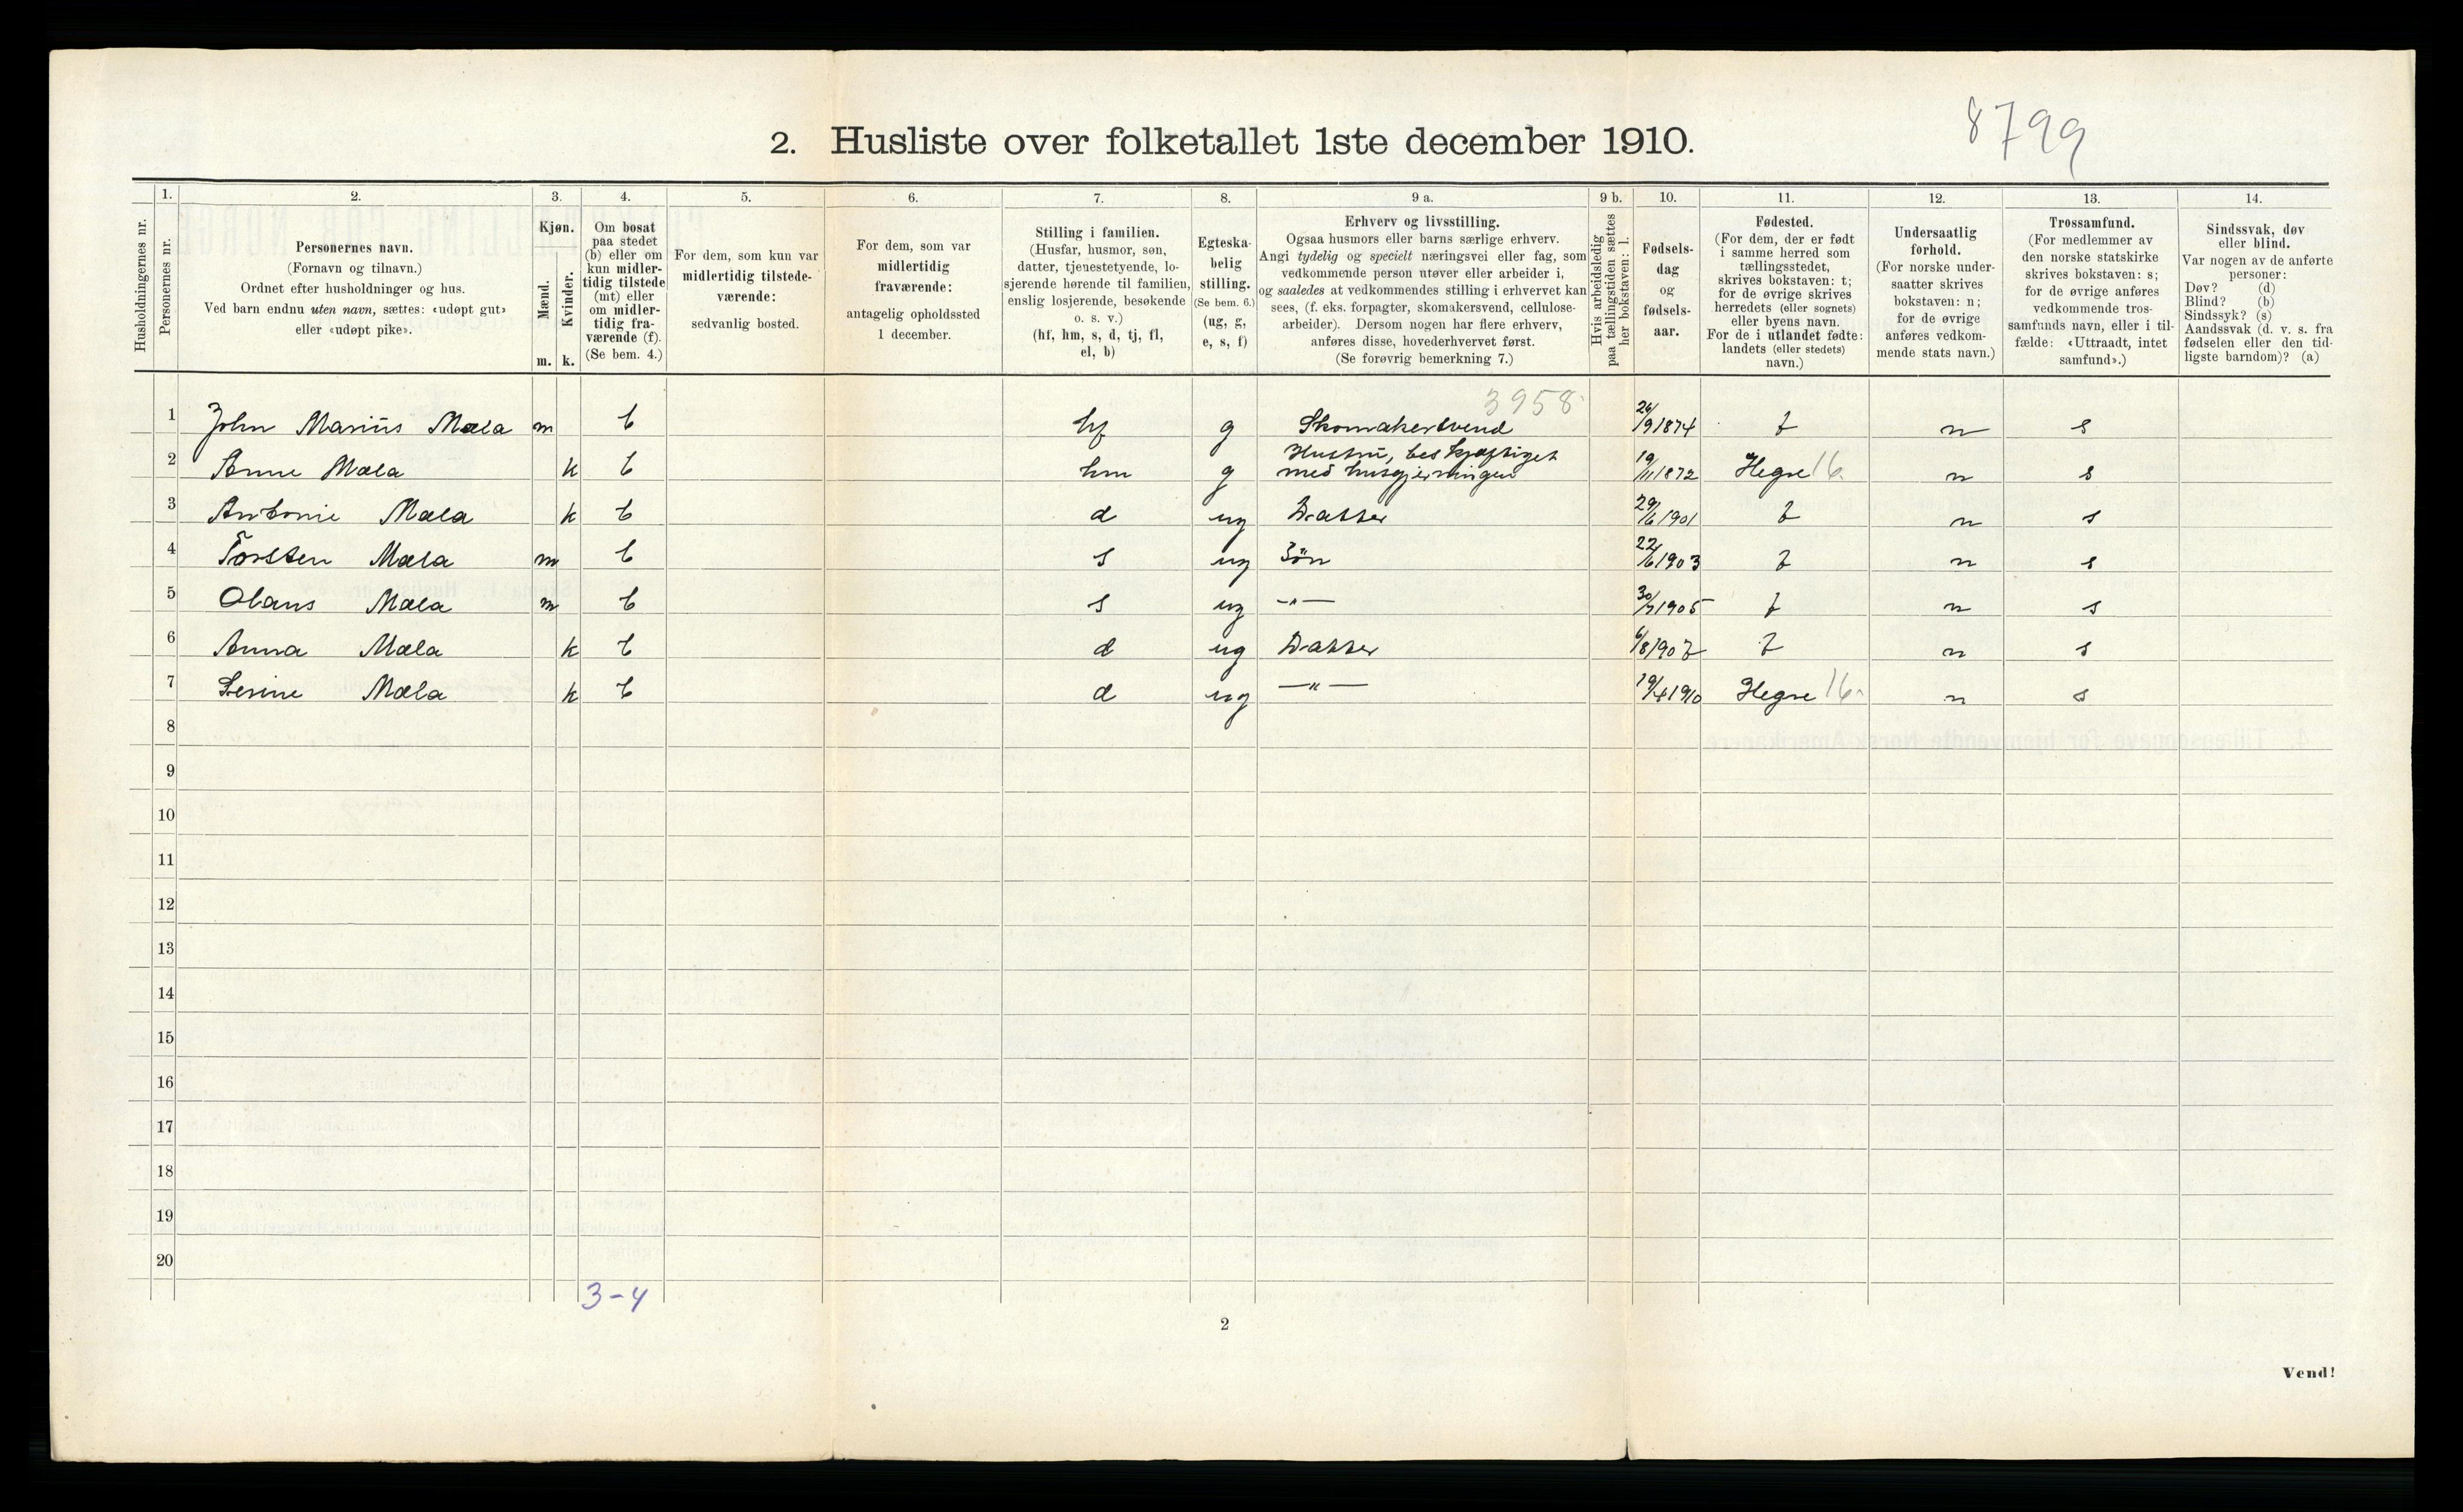 8799
2. Husliste over folketallet 1ste december 1910.
Husholdningernes nr.
1.
Personernes nr.
2.
Personernes navn.
(Fornavn og tilnavn.)
Ordnet efter husholdninger og hus.
Ved barn endnu uten navn, sættes: «udøpt gut»
eller «udøpt pike».
3.
Kjøn.
Mænd.
Kvinder.
m. k.
4.
Om bosat
paa stedet
(b) eller om
kun midler-
tidig tilstede
(mt) eller
om midler-
tidig fra-
værende (f).
(Se bem. 4.)
5.
For dem, som kun var
midlertidig tilstede-
værende:
sedvanlig bosted.
6.
For dem, som var
midlertidig
fraværende:
antagelig opholdssted
1 december.
7.
Stilling i familien.
(Husfar, husmor, søn,
datter, tjenestetyende, lo-
sjerende hørende til familien,
enslig losjerende, besøkende
o. s. v.)
(hf, hm, s, d, tj, fl,
el, b)
8.
Egteska-
belig
stilling.
(Se bem. 6.)
(ug, g,
e, s, f)
9 a.
Erhverv og livsstilling.
Ogsaa husmors eller barns særlige erhverv.
Angi tydelig og specielt næringsvei eller fag, som
vedkommende person utøver eller arbeider i,
og saaledes at vedkommendes stilling i erhvervet kan
sees, (f. eks. forpagter, skomakersvend, cellulose-
arbeider). Dersom nogen har flere erhverv,
anføres disse, hovederhvervet først.
(Se forøvrig bemerkning 7.)
9 b.
Hvis arbeidsledig
paa tællingstiden sættes
her bokstaven: l.
10.
Fødsels-
dag
og
fødsels-
aar.
11.
Fødested.
(For dem, der er født
i samme herred som
tællingsstedet,
skrives bokstaven: t;
for de øvrige skrives
herredets (eller sognets)
eller byens navn.
For de i utlandet fødte:
landets (eller stedets)
navn.)
12.
Undersaatlig
forhold.
(For norske under-
saatter skrives
bokstaven: n;
for de øvrige
anføres vedkom-
mende stats navn.)
13.
Trossamfund.
(For medlemmer av
den norske statskirke
skrives bokstaven: s;
for de øvrige anføres
vedkommende tros-
samfunds navn, eller i til-
fælde: «Uttraadt, intet
samfund».)
14.
Sindssvak, døv
eller blind.
Var nogen av de anførte
personer:
Døv? (d)
Blind? (b)
Sindssyk? (s)
Aandssvak (d. v. s. fra
fødselen eller den tid-
ligste barndom)? (a)
3958
1 John Marius Mæla m b hf g Skomakersvend 26/9 1874 t n s
2 Anne Mæla k b hm g Hustru, beskjæftiget med husgjerningen 19/11 1872 Hegre 16 n s
3 Antonie Mæla k b d ug Datter 29/6 1901 t n s
4 Torsten Mæla m b s ug Søn 22/6 1903 t n s
5 Olaus Mæla m b s ug —"— 30/7 1905 t n s
6 Anna Mæla k b d ug Datter 6/8 1907 t n s
7 Serine Mæla k b d ug —"— 19/4 1910 Hegre 16 n s
8
9
10
11
12
13
14
15
16
17
18
19
20
3-4
2
Vend!